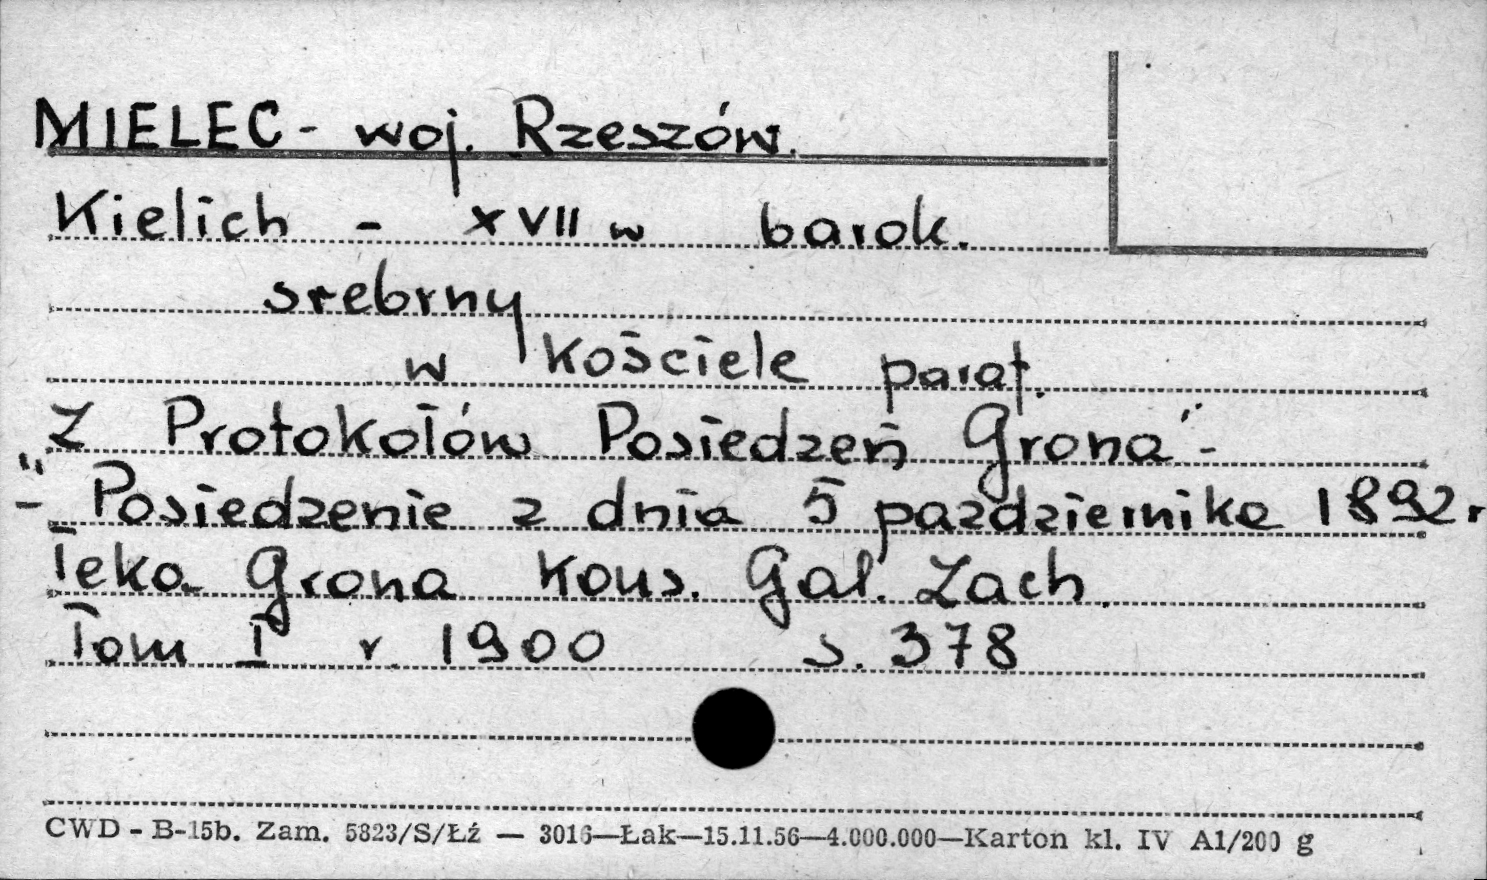 MIELEC - woj. Rzeszów.
Kielich - XVII w barok.
srebrny
w Kościele paraf.
Z Protokołów Posiedzeń Grona" -
"- Posiedzenie z dnia 5 pazdziernika 1892 r
Teka Grona Kons. Gal. Zach.
Tom I r. 1900 s. 378
CWD - B-15b. Zam. 5823/S/Łź — 3016—Łak—15.11.56—4.000.000—Karton kl. IV A1/200 g